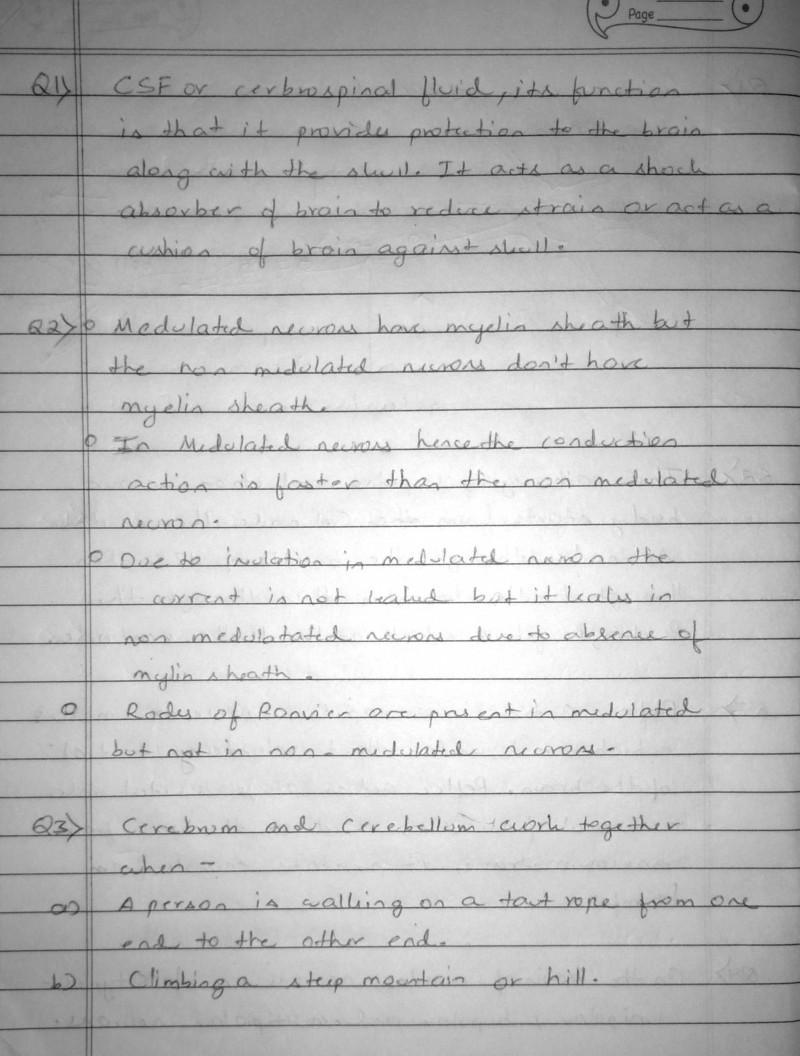 Page
Q1> CSF or cerbrospinal fluid, its function
is that it provides protection to the brain
along with the skull. It acts as a shock
absorber of brain to reduce strain or act as a
cushion of brain against skull.
Q2> Medulated neurons have myelin sheath but
the non medulated neurons don't have
myelin sheath.
In Medulated neurons hence the conduction
action is faster than the non medulated
neuron.
Due to insulation in medulated neuron the
current is not leaked but it leaks in
non medulatated neurons due to absence of
mylin sheath.
Nodes of Ranvier are present in medulated
but not in non-medulated neurons.
Q3> Cerebrum and Cerebellum work together
when -
a) A person is walking on a taut rope from one
end to the other end.
b) Climbing a steep mountain or hill.